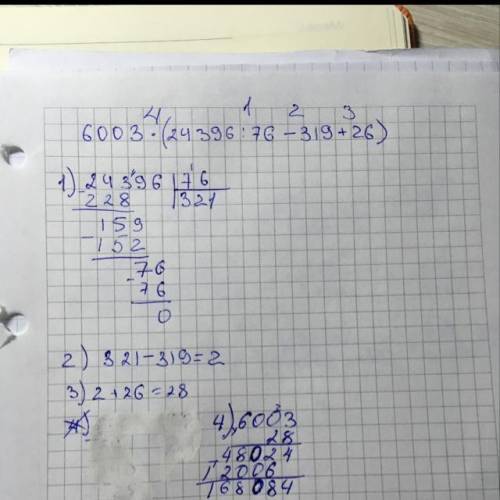 4 1 2 3
6003·(24396:76-319+26)
1) 24396 |76
-228 |321
159
-152
76
-76
0
2) 321-319=2
3) 2+26=28
4) 6003
28
48024
12006
168084